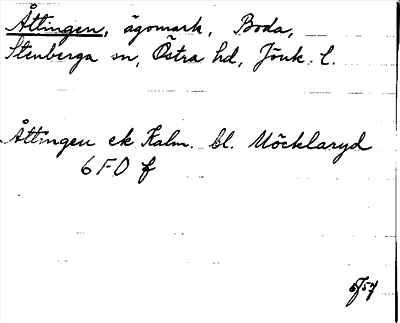 Åttingen, ägomark, Boda,
Stenberga sn, Östra hd, Jönk. l.
Åttingen ek Kalm. bl. Möcklaryd
6 F 0 f